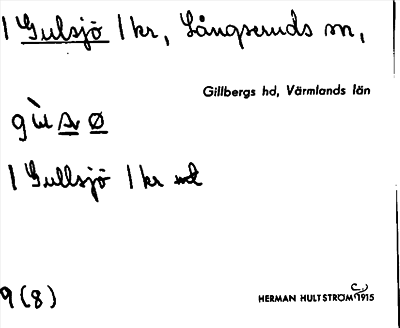 1 Gulsjö 1 kr, Långseruds sn,
Gillbergs hd, Värmlands län
1 Gullsjö 1 kr
9 (8)
HERMAN HULTSTRÖM C.) 1915